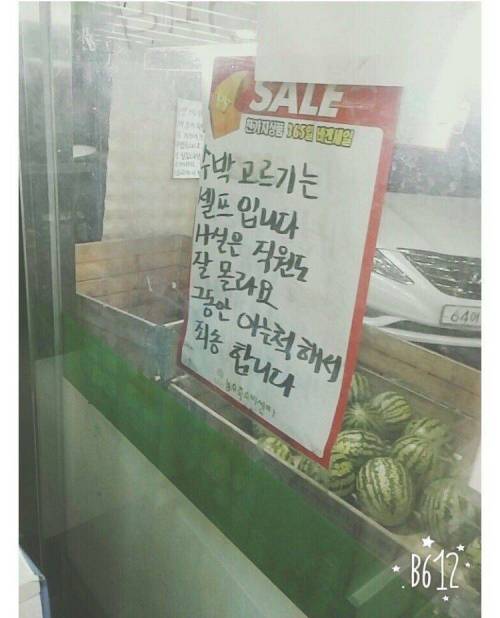 SALE
한가지상품 365일 바겐세일
수박 고르기는
셀프입니다
사실은 직원도
잘 몰라요
그동안 아는척 해서
죄송 합니다
64어
B612